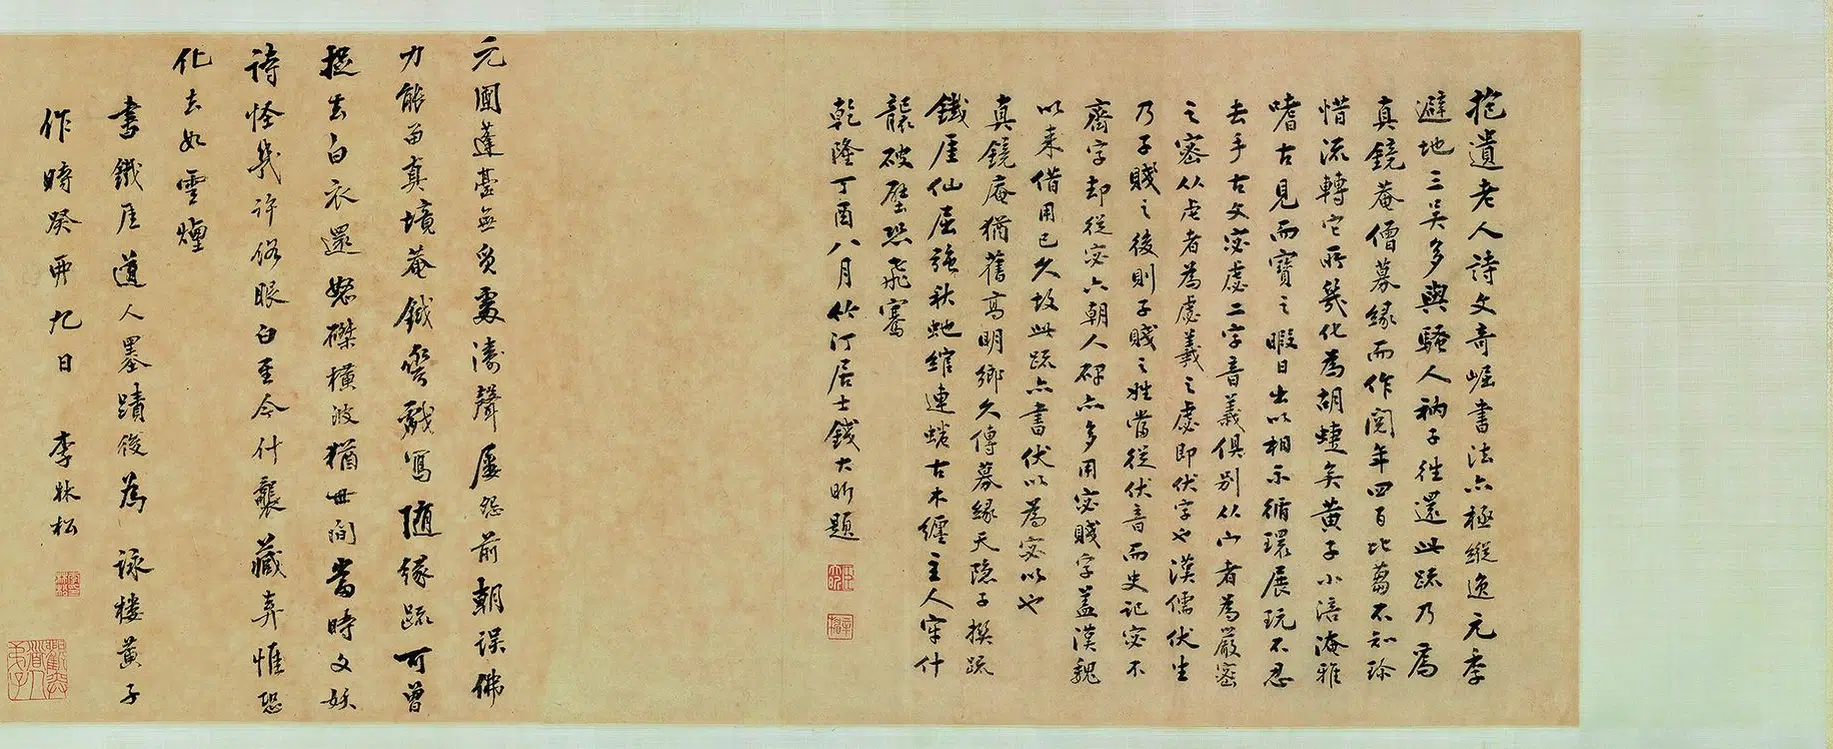 抱遺老人詩文奇崛書法亦極縱逸元季
避地三吴多與騷人衲子往還此疏乃爲
真鏡菴僧募緣而作閲年四百比蒭不知珍
惜流轉它所幾化爲胡蜨矣黄子小涪淹雅
嗜古見而寶之暇日出以相示循環展玩不忍
去手古文宓虙二字音義俱别从山者爲嚴密
之密从虍者爲虙羲之虙即伏字也漢儒伏生
乃子賤之後則子賤之姓當從伏音而史記宓不
齊字却從宓六朝人碑亦多用宓賤字蓋漢魏
以來借用已久故此疏亦書伏以爲宓以也
真鏡庵猶舊高明鄉久傳募緣天隱子撰疏
鐵厓仙屈强秋虵綰連蜷古木纏主人牢什
襲破壁恐飛騫
乾隆丁酉八月竹汀居士錢大昕題
元圃蓬臺無覓處濤聲屢怨前朝誤佛
力能留真境菴鐵笛戲寫隨緣疏可曾
捉去白衣還怒磔横波猶世間當時文妖
詩怪幾許俗眼白至今什襲藏弆惟恐
化去如雲煙
書鐵厓道人墨蹟後爲 詠樓黄子
作時癸酉九日 李林松